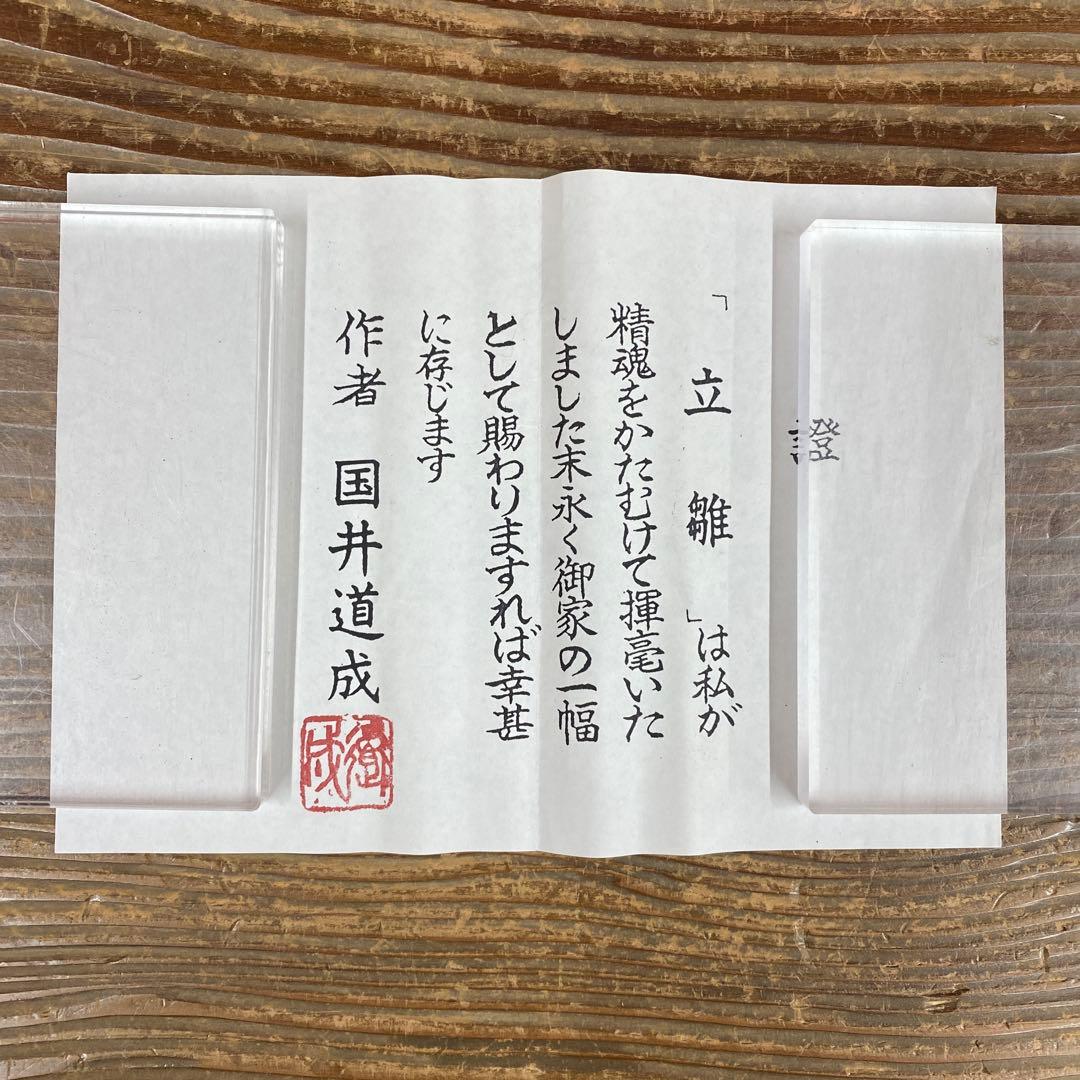 證
「立雛」は私が
精魂をかたむけて揮毫いた
しました末永く御家の一幅
として賜わりますれば幸甚
に存じます
作者 国井道成
道成